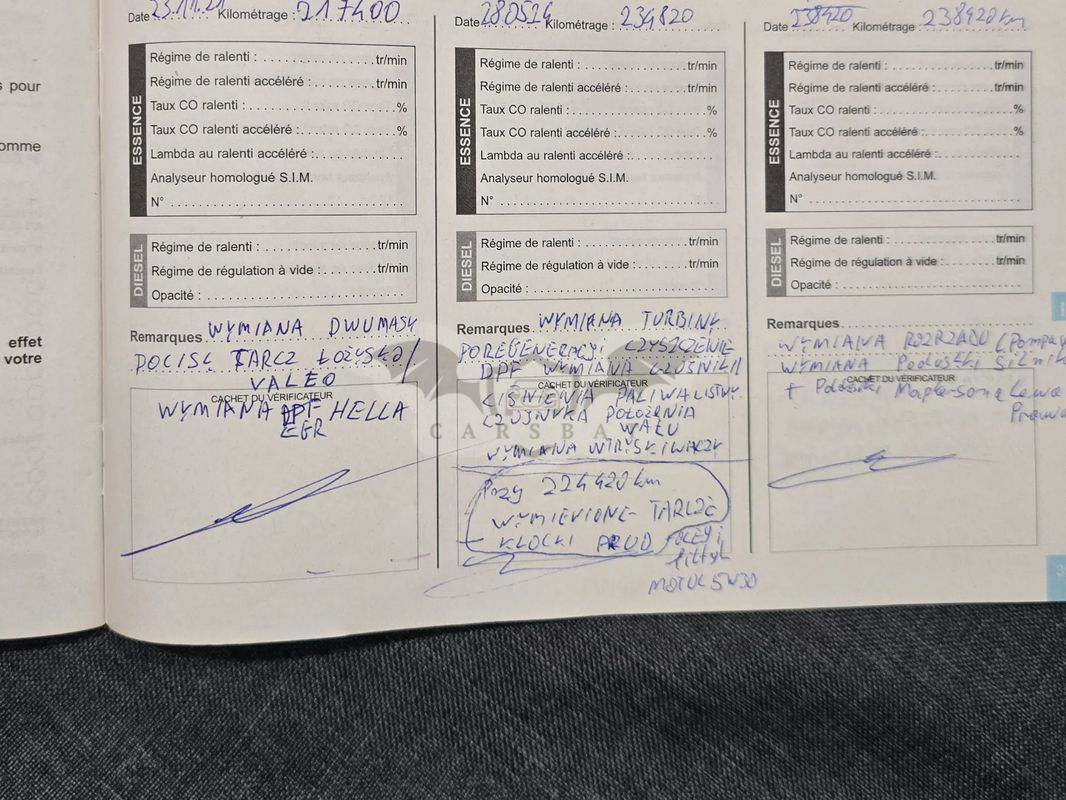 s pour
omme
effet
votre
Date Kilométrage : 217400
ESSENCE
Régime de ralenti : tr/min
Régime de ralenti accéléré : tr/min
Taux CO ralenti : %
Taux CO ralenti accéléré : %
Lambda au ralenti accéléré :
Analyseur homologué S.I.M.
N°
DIESEL
Régime de ralenti : tr/min
Régime de régulation à vide : tr/min
Opacité :
Remarques WYMIANA DWUMASY
DOCISK TARCZ ŁOŻYSKO/
VALEO
CACHET DU VÉRIFICATEUR
WYMIANA HELLA
EGR
Date 280524 Kilométrage : 234820
ESSENCE
Régime de ralenti : tr/min
Régime de ralenti accéléré : tr/min
Taux CO ralenti : %
Taux CO ralenti accéléré : %
Lambda au ralenti accéléré :
Analyseur homologué S.I.M.
N°
DIESEL
Régime de ralenti : tr/min
Régime de régulation à vide : tr/min
Opacité :
Remarques WYMIANA TURBINY
POREGENERACJI CZYSZCZENIE
DPF WYMIANA
CACHET DU VÉRIFICATEUR
CIŚNIENIA PALIWA LISTWY
CZUJNIKA POŁOŻENIA
WAŁU
WYMIANA WTRYSKIWACZY
Przy 224420 km
WYMIENIONE TARCZE
KLOCKI PRZUD
MOTUL 5W30
CARSBA
Date 238420 Kilométrage : 238420 km
ESSENCE
Régime de ralenti : tr/min
Régime de ralenti accéléré : tr/min
Taux CO ralenti : %
Taux CO ralenti accéléré : %
Lambda au ralenti accéléré :
Analyseur homologué S.I.M.
N°
DIESEL
Régime de ralenti : tr/min
Régime de régulation à vide : tr/min
Opacité :
Remarques
WYMIANA ROZRZADU (Pompa
WYMIANA Poduszki Silnik
CACHET DU VÉRIFICATEUR
+ Lewa
Prawa